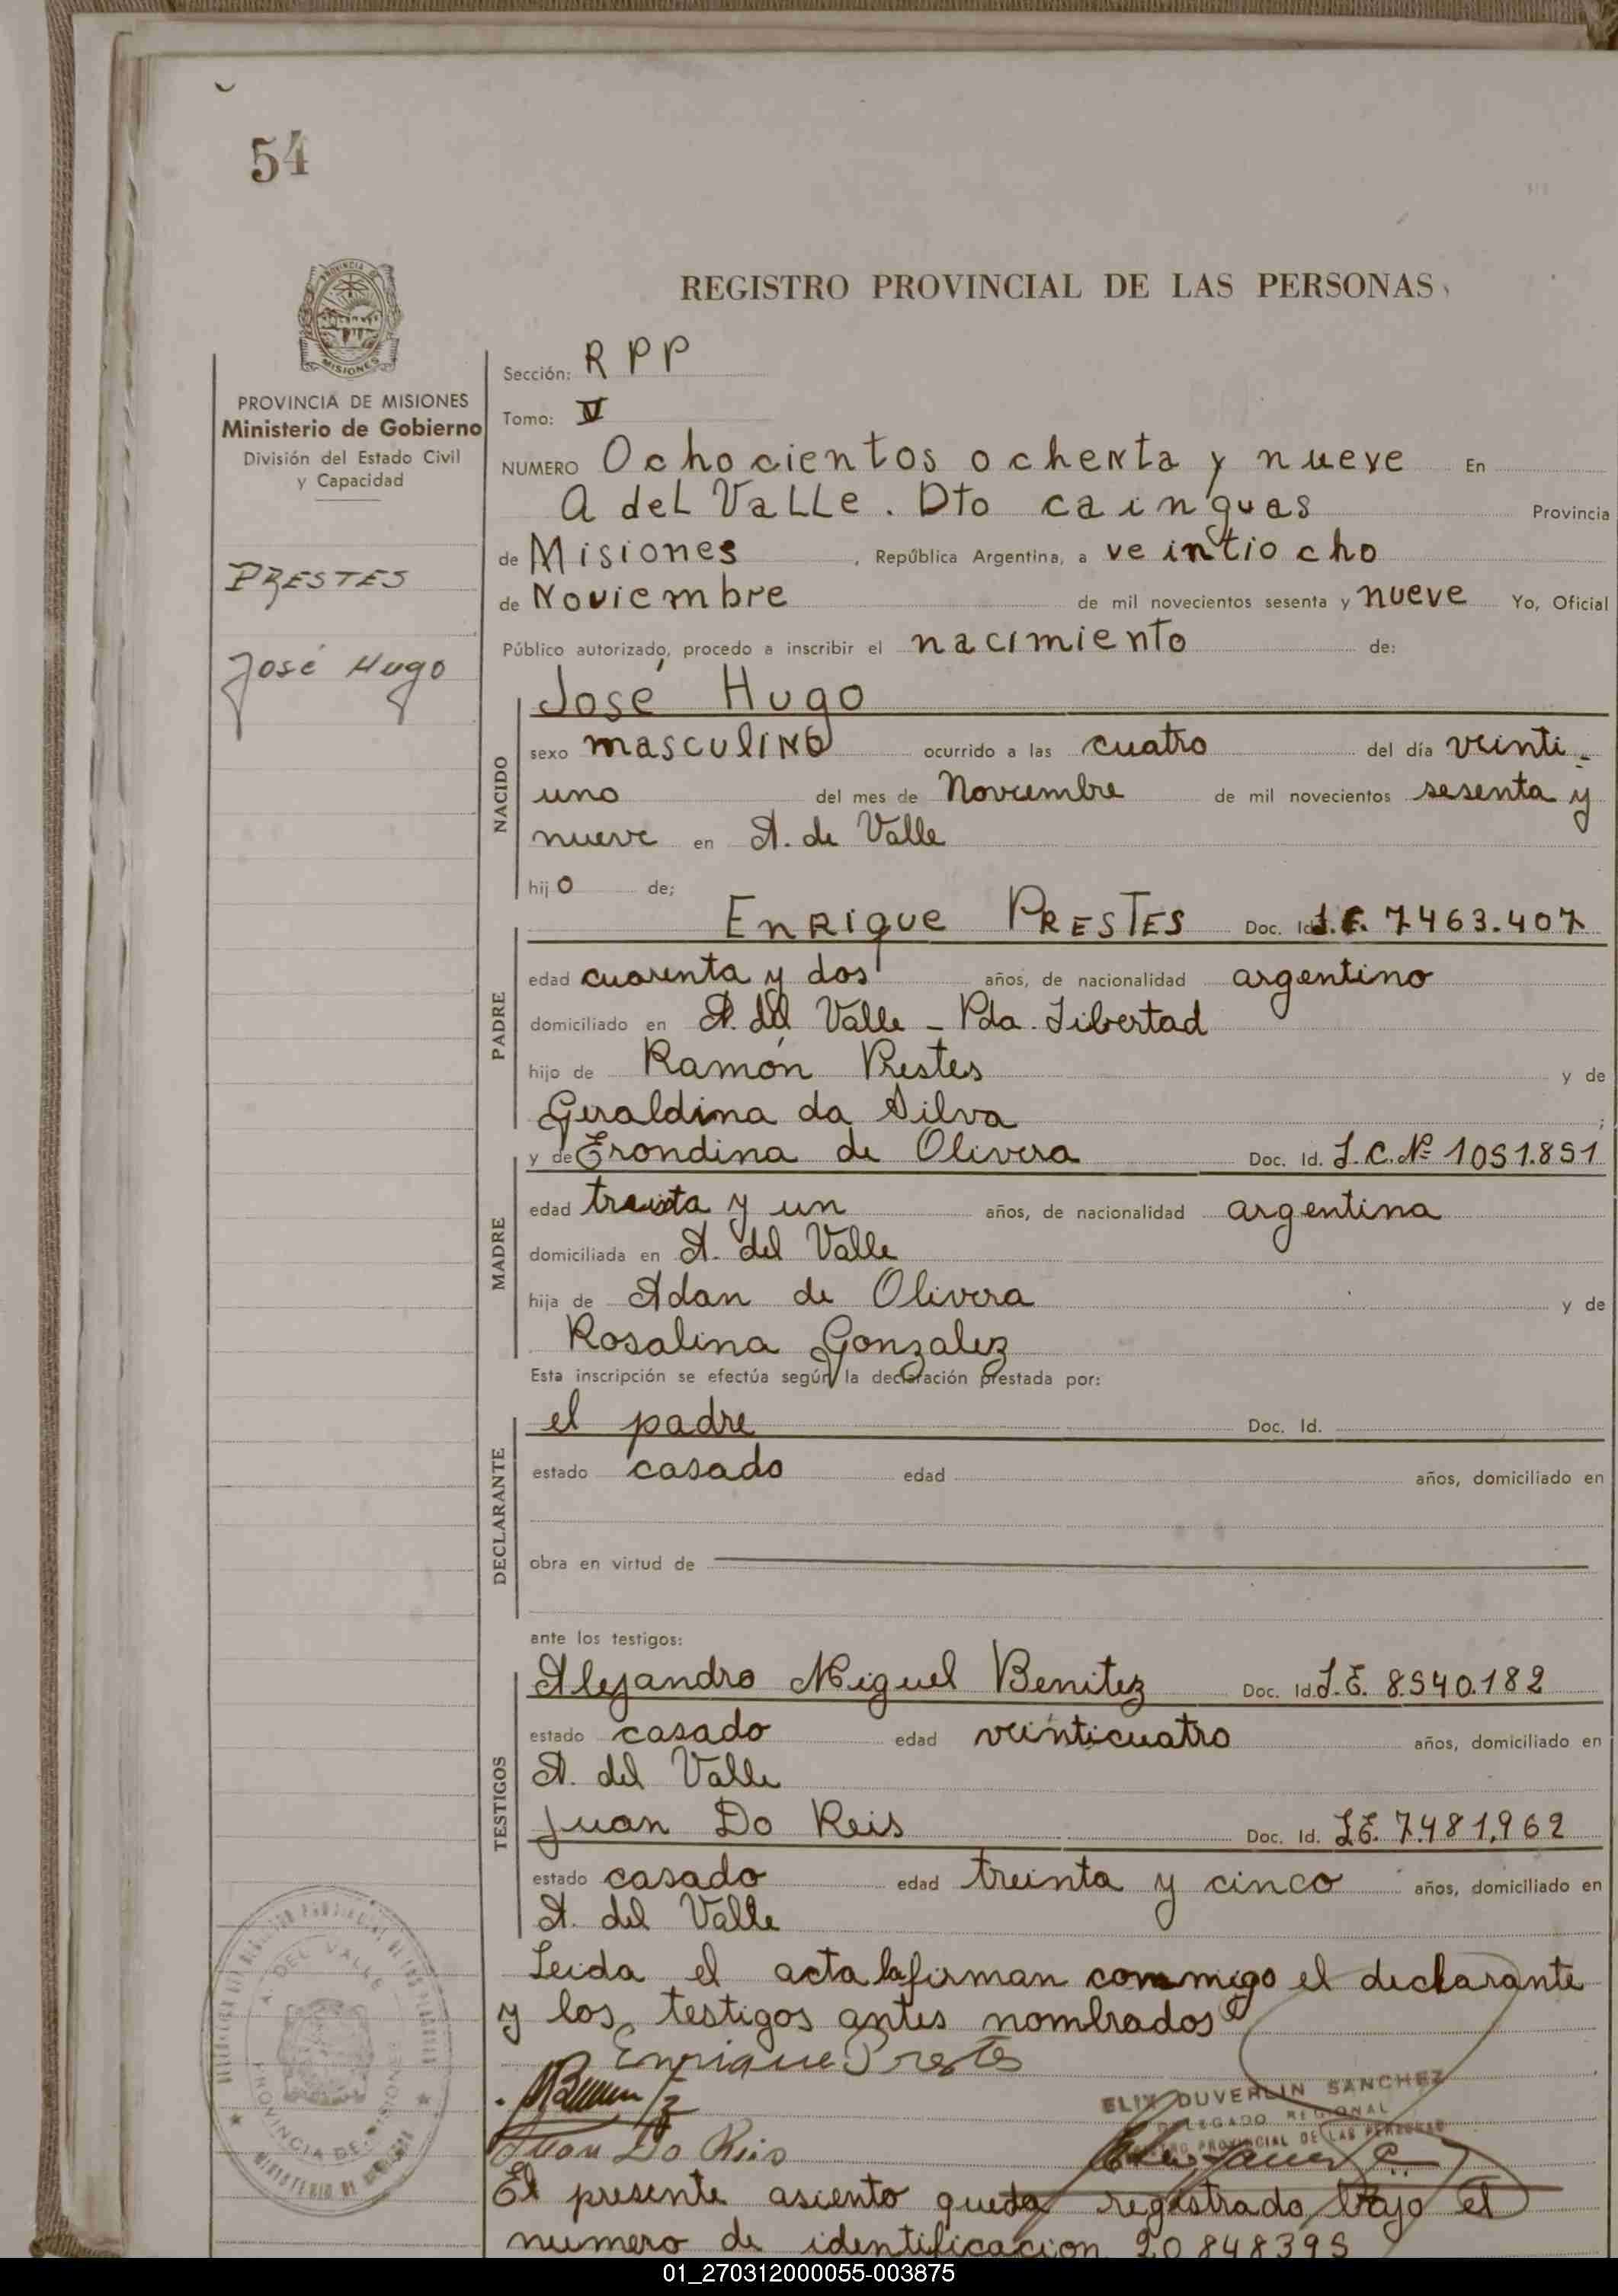 54
REGISTRO PROVINCIAL DE LAS PERSONAS
MISIONES
PROVINCIA DE MISIONES
Ministerio de Gobierno
División del Estado Civil
y Capacidad
PRESTES
José Hugo
Sección: RPP
Tomo: IV
NUMERO Ochocientos ochenta y nueve En
A del Valle. Dto cainguas Provincia
de Misiones , República Argentina, a veintiocho
de Noviembre de mil novecientos sesenta y nueve Yo, Oficial
Público autorizado, procedo a inscribir el nacimiento de:
José Hugo
NACIDO
sexo masculino ocurrido a las cuatro del día veinti-
uno del mes de Noviembre de mil novecientos sesenta y
nueve en A. de Valle
hijo de;
Enrique PRESTES Doc. Id. L.E. 7463.407
PADRE
edad cuarenta y dos años, de nacionalidad argentino
domiciliado en A. del Valle - Pda. Libertad
hijo de Ramón Prestes y de
Geraldina da Silva ;
y de Erondina de Olivera Doc. Id. L.C. Nº 1051.851
MADRE
edad treinta y un años, de nacionalidad argentina
domiciliada en A. del Valle
hija de Adan de Olivera y de
Rosalina Gonzalez
Esta inscripción se efectúa según la declaración prestada por:
el padre Doc. Id.
DECLARANTE
estado casado edad años, domiciliado en
obra en virtud de
ante los testigos:
Alejandro Miguel Benitez Doc. Id. L.E. 8.540.182
TESTIGOS
estado casado edad veinticuatro años, domiciliado en
A. del Valle
Juan Do Reis Doc. Id. L.E. 7.481.962
estado casado edad treinta y cinco años, domiciliado en
A. del Valle
Leida el acta la firman conmigo el declarante
y los testigos antes nombrados
Enrique Prestes
Juan Do Reis
ELIX DUVERLIN SANCHEZ
DELEGADO REGIONAL
REGISTRO PROVINCIAL DE LAS PERSONAS
A. DEL VALLE
PROVINCIA DE MISIONES
El presente asiento queda registrado bajo el
numero de identificacion 20848395
01_270312000055-003875